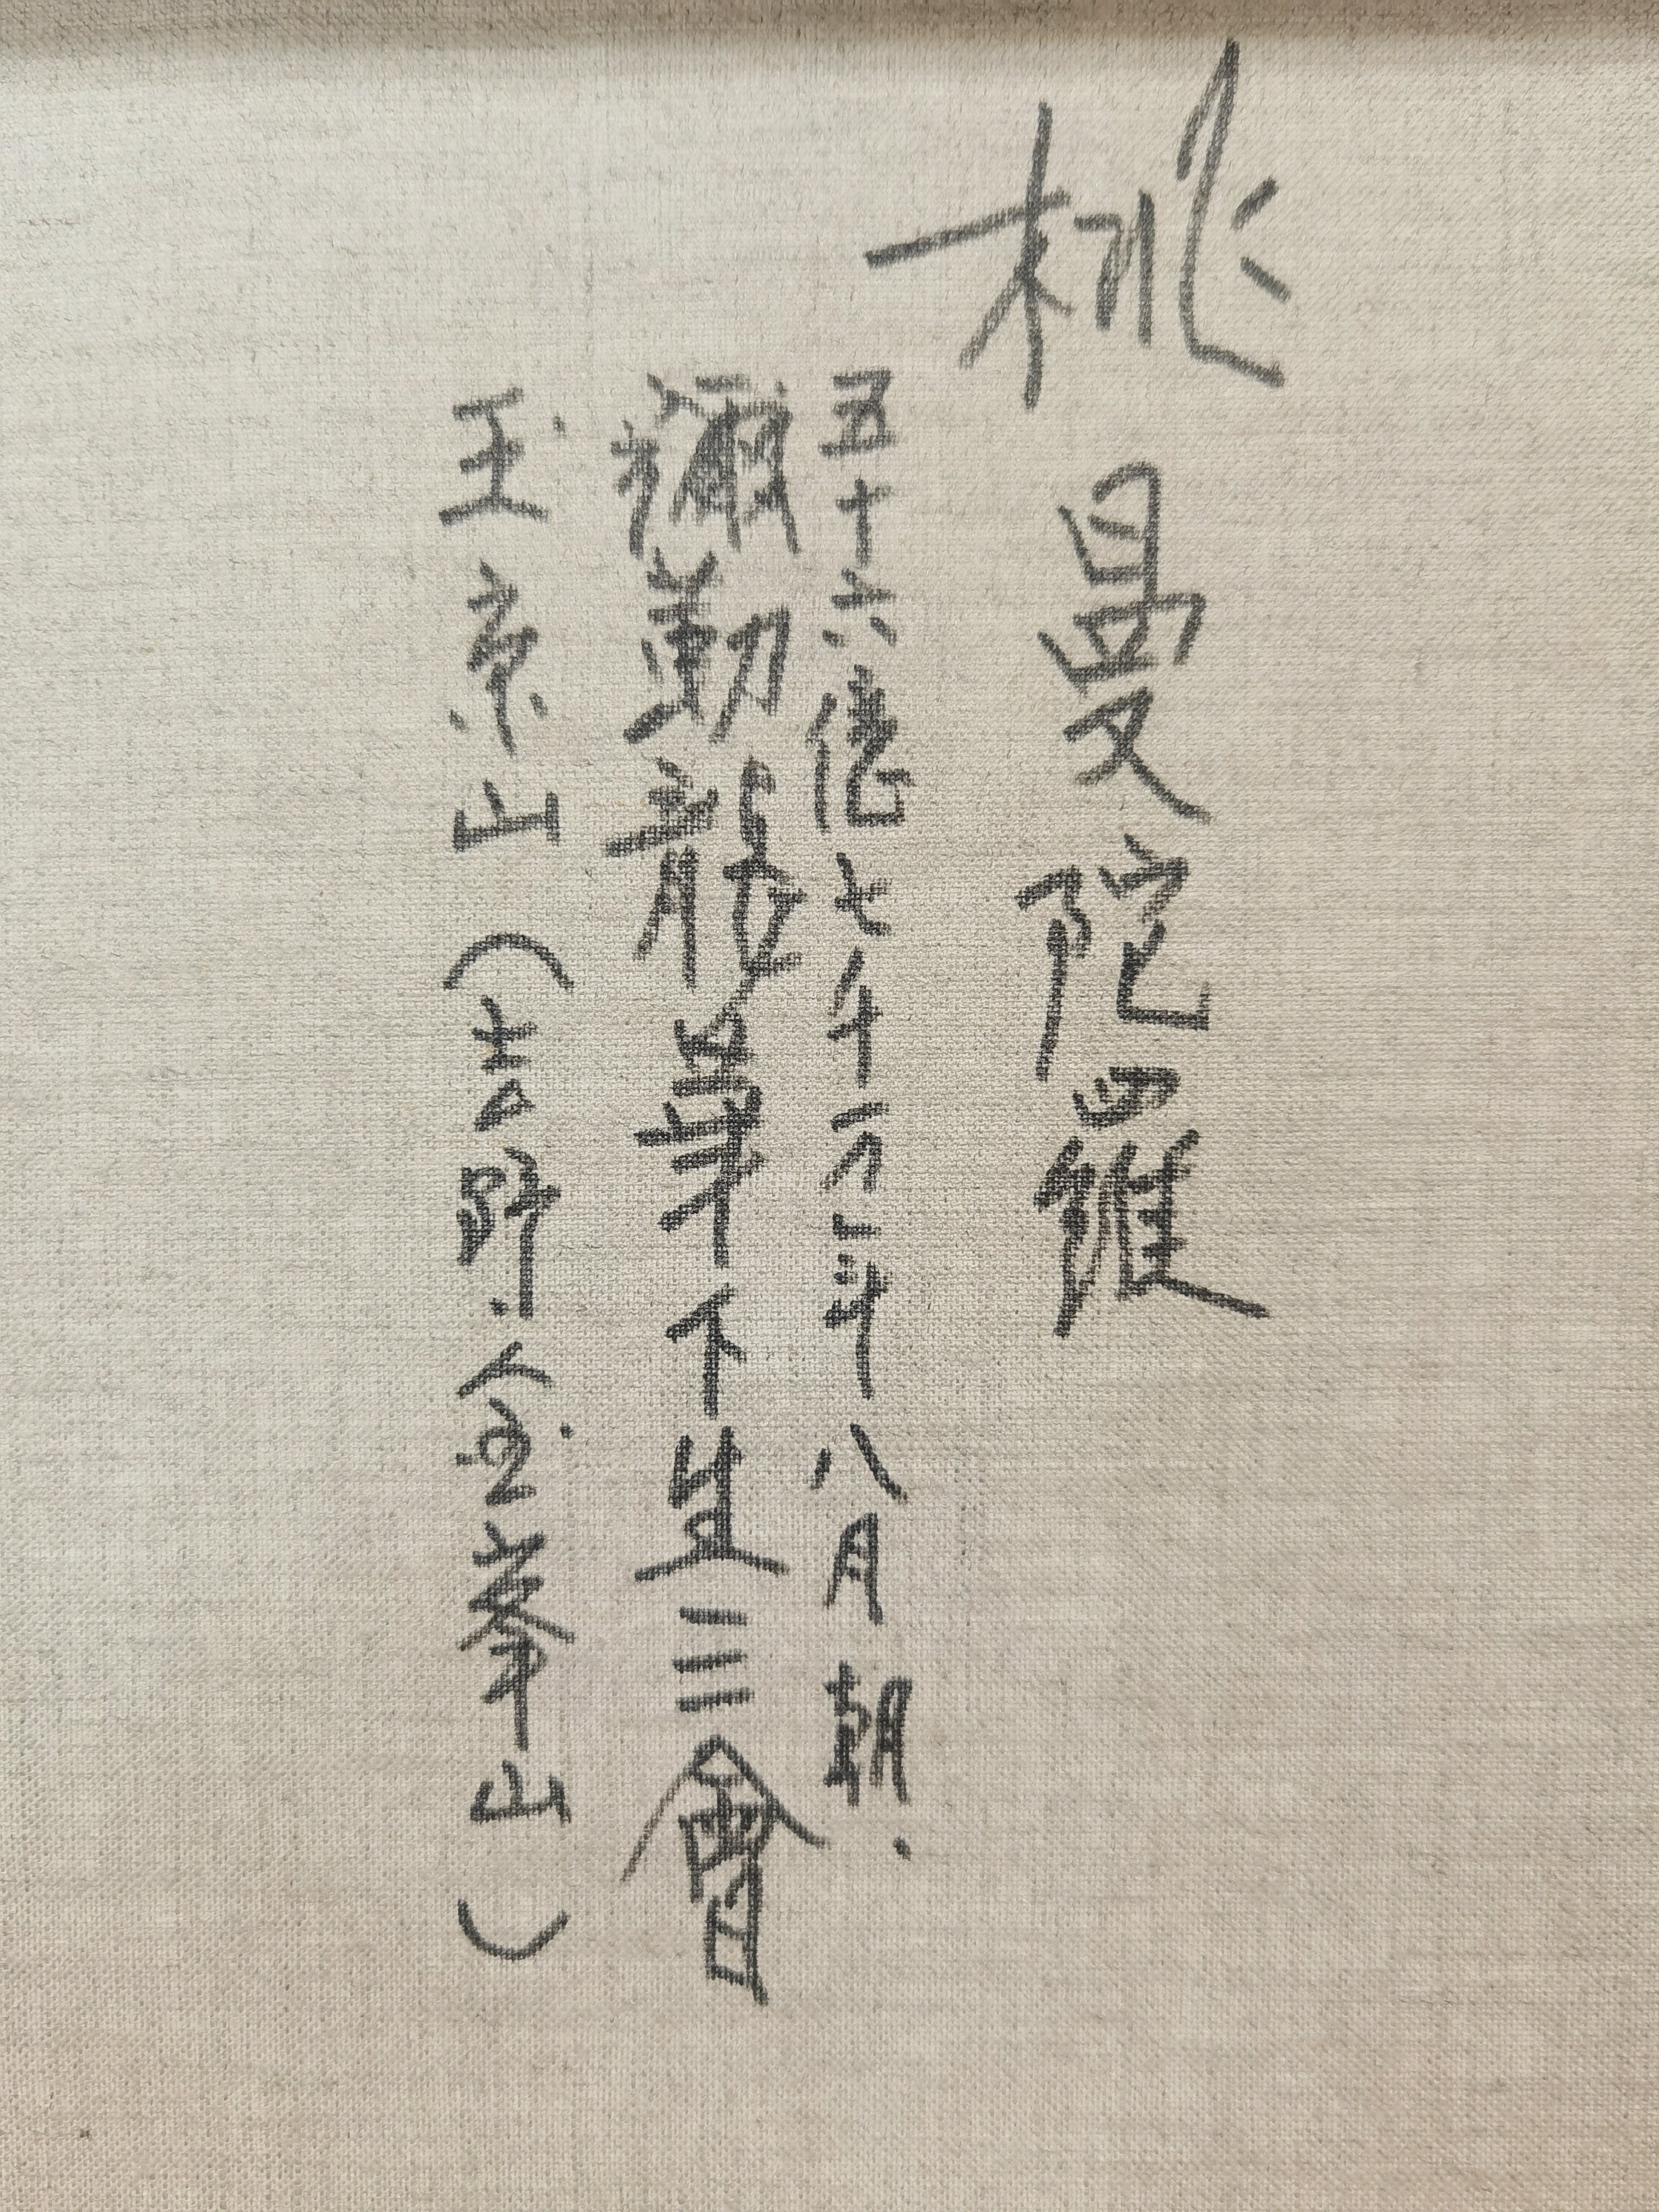 桃曼陀羅
五十六億七千万年八月朝.
彌勒龍華下生三會
玉京山(吉野・金峯山)